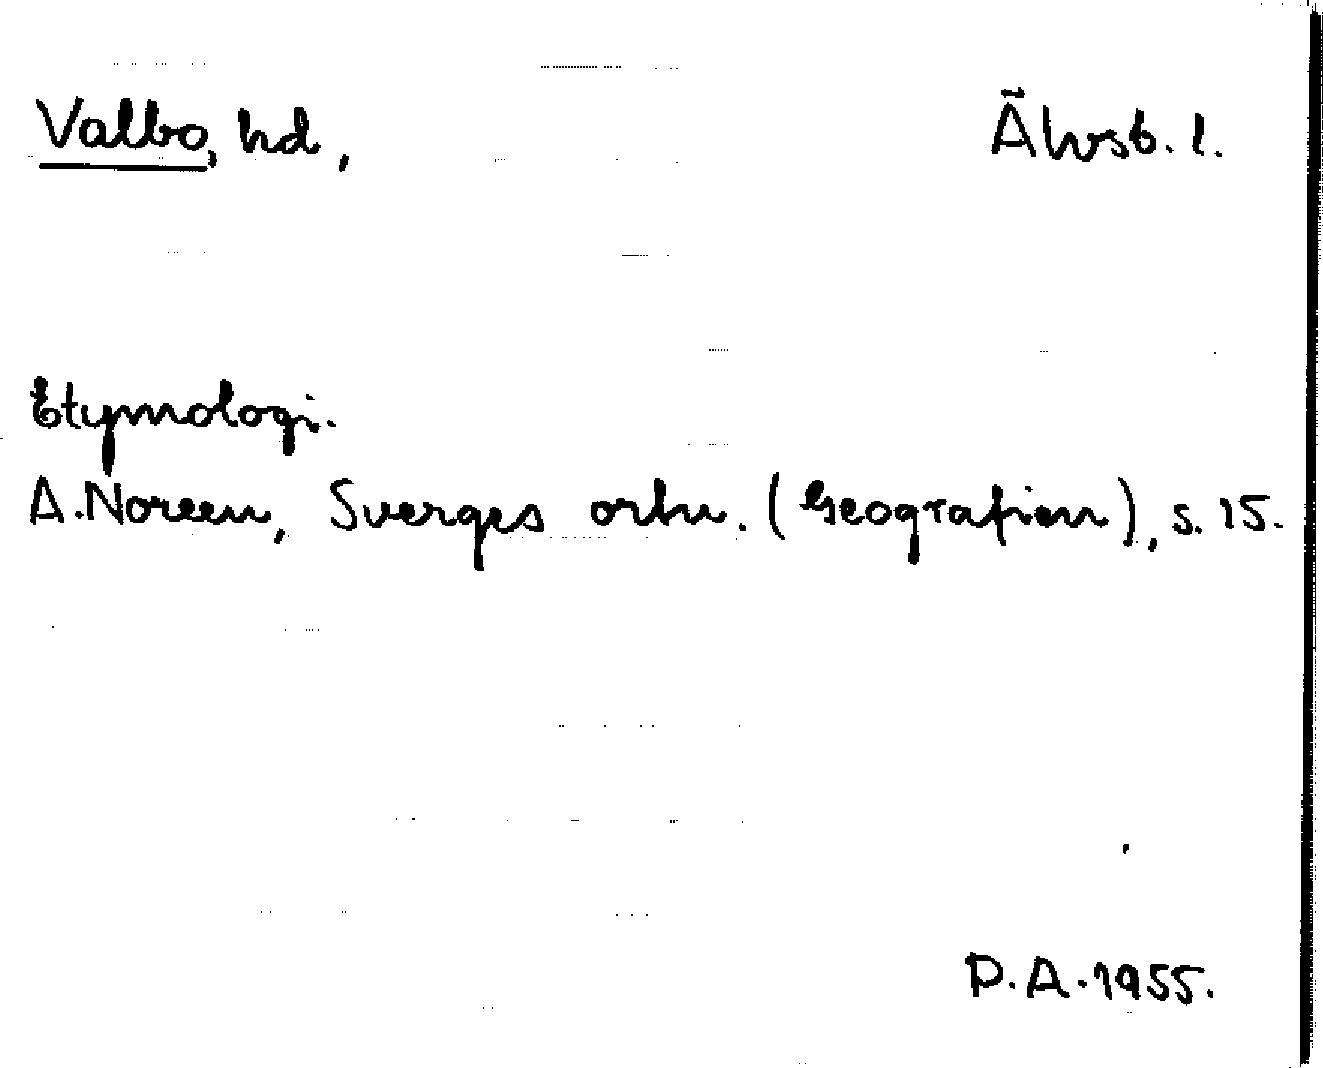 Valbo, hd, Älvsb. l.
Etymologi.
A. Noreen, Sverges ortn. (Geografien), s. 15.
P.A. 1955.